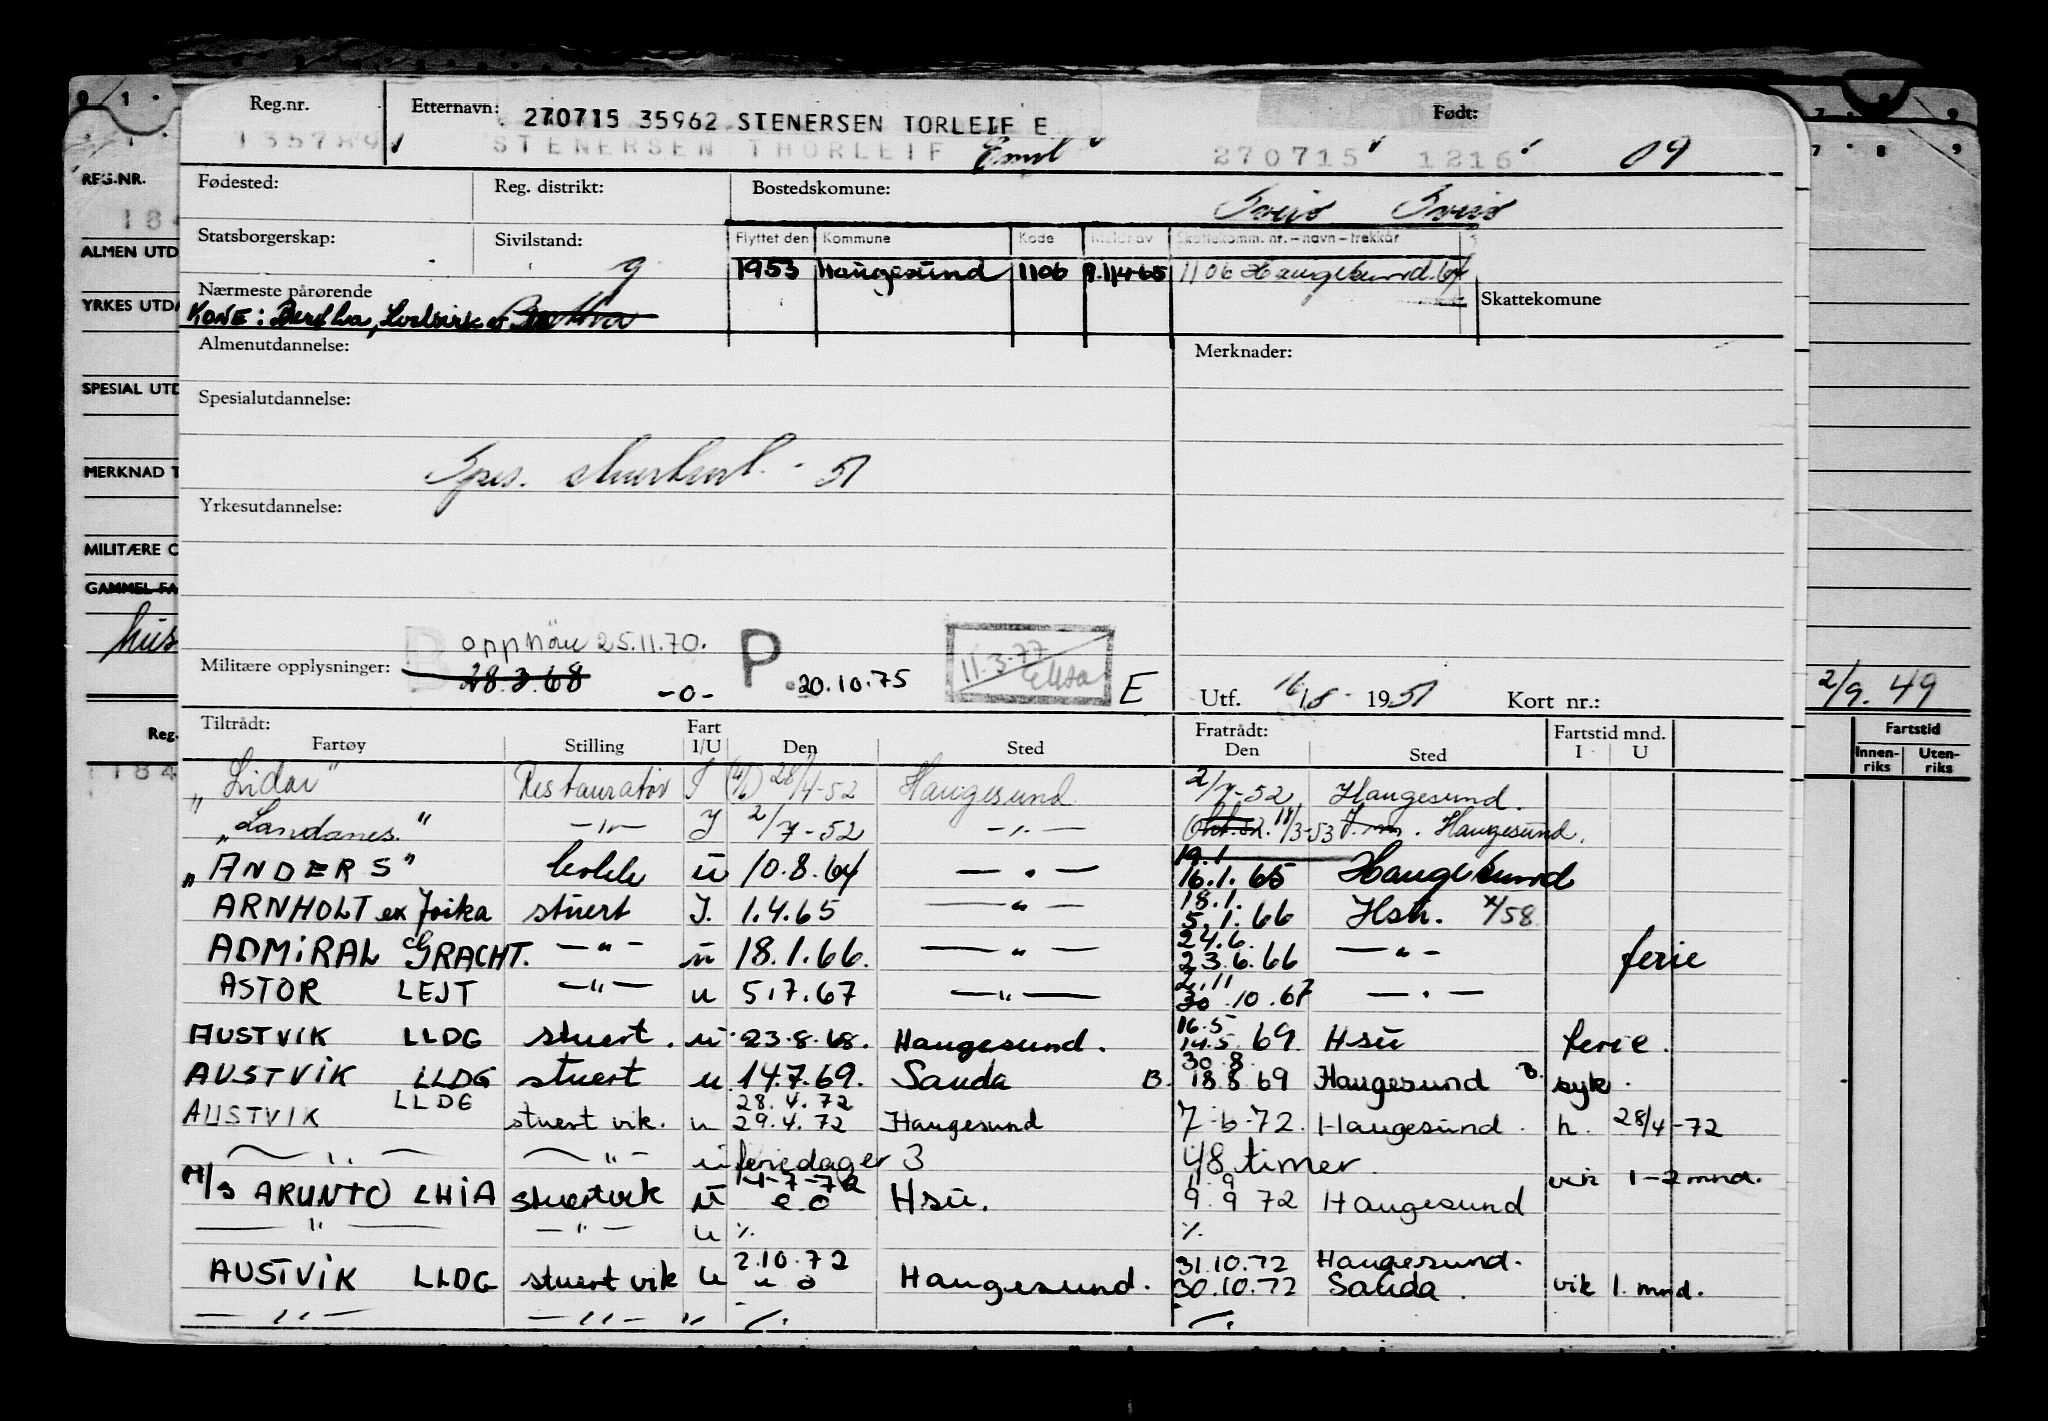 Reg.nr. Etternavn: 270715 35962 STENERSEN TORLEIF E Født:
135789 STENERSEN THORLEIF Emil 270715 1216 09
Fødested: Reg. distrikt: Bostedskomune:
Sveio Sveio
Statsborgerskap: Sivilstand: g Flyttet den Kommune Kode Meldt av Skattekomm. nr. – navn – trekkår
1953 Haugesund 1106 9.1/4-65 1106 Haugesund. 64
Nærmeste pårørende Skattekomune
KONE: Bertha,
Almenutdannelse: Merknader:
Spesialutdannelse:
Spes. stuertkurs. - 51
Yrkesutdannelse:
B opphöu 25.11.70. P
Militære opplysninger: 28.3.68 -0- 20.10.75 11.3.77 E Utf. 16/8 - 1951 Kort nr.:
Tiltrådt: Fratrådt: Fartstid mnd.
Fartøy Stilling Fart I/U Den Sted Den Sted I U
"Lidar" Restauratør I 28/4-52 Haugesund 2/7-52 Haugesund.
"Landanes" -"- I 2/7-52 -"- 18/3-53 Haugesund.
19.1
"ANDERS" kokk u 10.8.64 — " — 16.1.65 Haugesund
18.1.
ARNHOLT ex Joika stuert I. 1.4.65 — " — 5.1.66 Hsh. 4/58
24.6.
ADMIRAL GRACHT. — " — u 18.1.66. — " — 23.6.66 — " — ferie
2.11
ASTOR LEJT — " — u 5.7.67 — " — 30.10.67 — " —
16.5
AUSTVIK LLDG stuert. u. 23.8.68. Haugesund. 14.5. 69. Hsu ferie.
30.8.
AUSTVIK LLDG stuert u 14.7.69. Sauda B. 18.8 69 Haugesund B. syk.
LLDG 28.4.72
AUSTVIK stuert vik. u 29.4.72 Haugesund 7-6-72. Haugesund. h. 28/4-72
— " — — " — u feriedager 3 48 timer.
14-7-72 11.9 vik 1-2 mnd.
M/S ARUNTO LHIA stuertvik u e.o Hsu. 9.9 72 Haugesund
— " — — " — u ⁒ ⁒
2.10.72 31.10.72 Haugesund.
AUSTVIK LLDG stuert vik u u o Haugesund. 30.10.72 Sauda. vik 1. mnd.
— " — — " — " ⁒ ⁒
REG.NR.
184
ALMEN UTD
YRKES UTDA
SPESIAL UTD
MERKNAD T
MILITÆRE O
GAMMEL FA
hus
Reg.
1184
2/9. 49
Fartstid
Innen-riks Uten-riks